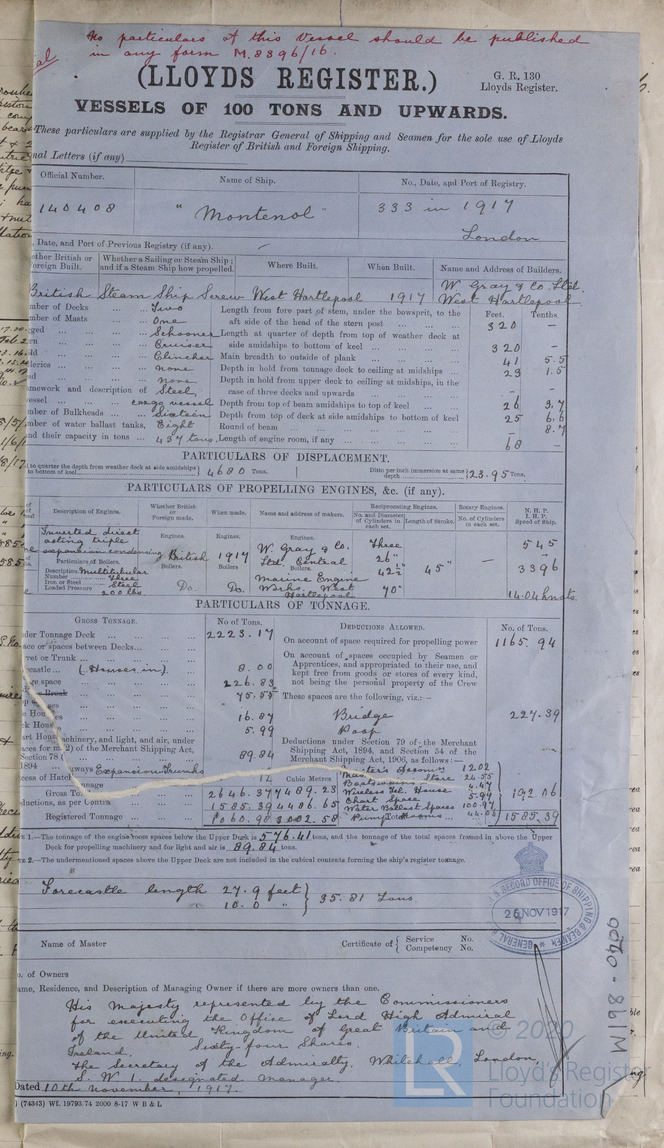 No particulars of this Vessel should be published
in any form M.8396/16.
(LLOYDS REGISTER.)
G. R. 130
Lloyds Register.
VESSELS OF 100 TONS AND UPWARDS.
These particulars are supplied by the Registrar General of Shipping and Seamen for the sole use of Lloyds
Register of British and Foreign Shipping.
nal Letters (if any)
Official Number. Name of Ship. No., Date, and Port of Registry.
140408 "Montenol" 333 in 1917
London
, Date, and Port of Previous Registry (if any).
ether British or Whether a Sailing or Steam Ship; Where Built. When Built. Name and Address of Builders.
oreign Built. and if a Steam Ship how propelled.
W. Gray & Co. Ltd.
British Steam Ship Screw West Hartlepool 1917 West Hartlepool
mber of Decks Two Length from fore part of stem, under the bowsprit, to the Feet. Tenths.
mber of Masts One aft side of the head of the stern post 320 —
ged Schooner Length at quarter of depth from top of weather deck at
rn Cruiser side amidships to bottom of keel 320 —
ld Clincher Main breadth to outside of plank 41 5.5
leries none Depth in hold from tonnage deck to ceiling at midships 23 1.5
d none Depth in hold from upper deck to ceiling at midships, in the
mework and description of Steel, case of three decks and upwards — —
essel cargo vessel Depth from top of beam amidships to top of keel 26 3.7
mber of Bulkheads Sixteen Depth from top of deck at side amidships to bottom of keel 25 6.6
mber of water ballast tanks, Eight Round of beam 8.7
nd their capacity in tons 437 tons Length of engine room, if any 18 —
PARTICULARS OF DISPLACEMENT.
to quarter the depth from weather deck at side amidships to bottom of keel 4680 Tons. Ditto per inch immersion at same depth 23.95 Tons.
PARTICULARS OF PROPELLING ENGINES, &c. (if any).
Description of Engines. Whether British or Foreign made. When made. Name and address of makers. Reciprocating Engines. Rotary Engines. N. H. P.
No. and Diameter of Cylinders in each set. Length of Stroke. No. of Cylinders in each set. I. H. P.
Speed of Ship.
Inverted direct Engines. Engines. Engines.
acting triple Three 545
expansion condensing British 1917 W. Gray & Co. 26" —
Particulars of Boilers. Boilers. Boilers Ltd. Central 42½" 45" 3396
Description Multitubular Boilers.
Number Three Marine Engine 70"
Iron or Steel Steel Do. Do. Works West
Loaded Pressure 200 lbs. Hartlepool 14.04 knots
PARTICULARS OF TONNAGE.
GROSS TONNAGE. No. of Tons. DEDUCTIONS ALLOWED. No. of Tons.
der Tonnage Deck 2223.17 On account of space required for propelling power 1165.94
ace or spaces between Decks On account of spaces occupied by Seamen or
ret or Trunk Apprentices, and appropriated to their use, and
castle (Houses in) 8.00 kept free from goods or stores of every kind,
ge space 226.83 not being the personal property of the Crew
Break 75.55 These spaces are the following, viz.:—
Hou 16.87 Bridge 227.39
k Hous 5.99 Poop
art Hous Deductions under Section 79 of the Merchant
achinery, and light, and air, under Shipping Act, 1894, and Section 54 of the
aces for 2) of the Merchant Shipping Act, 89.84 Merchant Shipping Act, 1906, as follows:—
Section 78 (
1894 ways Expansion Trunks Master's 12.02
cess of Hatch .12 Cubic Metres Boatswain's Store 24.55
Gross Tonnage 2646.37 7489.23 Wireless Tel. House 4.47
Chart Space 5.99 192.06
ductions, as per Contra 1585.39 4486.65 Water Ballast Spaces 100.97
Registered Tonnage 1060.98 3002.58 Pump Rooms 44.06 Total 1585.39
1.—The tonnage of the engine room spaces below the Upper Deck is 576.41 tons, and the tonnage of the total spaces framed in above the Upper
Deck for propelling machinery and for light and air is 89.84 tons.
e 2.—The undermentioned spaces above the Upper Deck are not included in the cubical contents forming the ship's register tonnage.
Forecastle length 27.9 feet } 35.81 Tons
" 10.0 "
RECORD OFFICE OF SHIPPING & SEAMEN
26 NOV 1917
GENERAL
Name of Master Certificate of { Service No.
Competency No.
o. of Owners
ame, Residence, and Description of Managing Owner if there are more owners than one.
His Majesty represented by the Commissioners
for executing the Office of Lord High Admiral
of the United Kingdom of Great Britain and
Ireland. Sixty-four Shares.
The Secretary of the Admiralty, Whitehall, London,
S. W. 1. designated manager.
Dated 10th November, 1917.
(74343) Wt. 19793.74 2000 8-17 W B & L
M198-0040
LR
© 2020
Lloyd's Register
Foundation